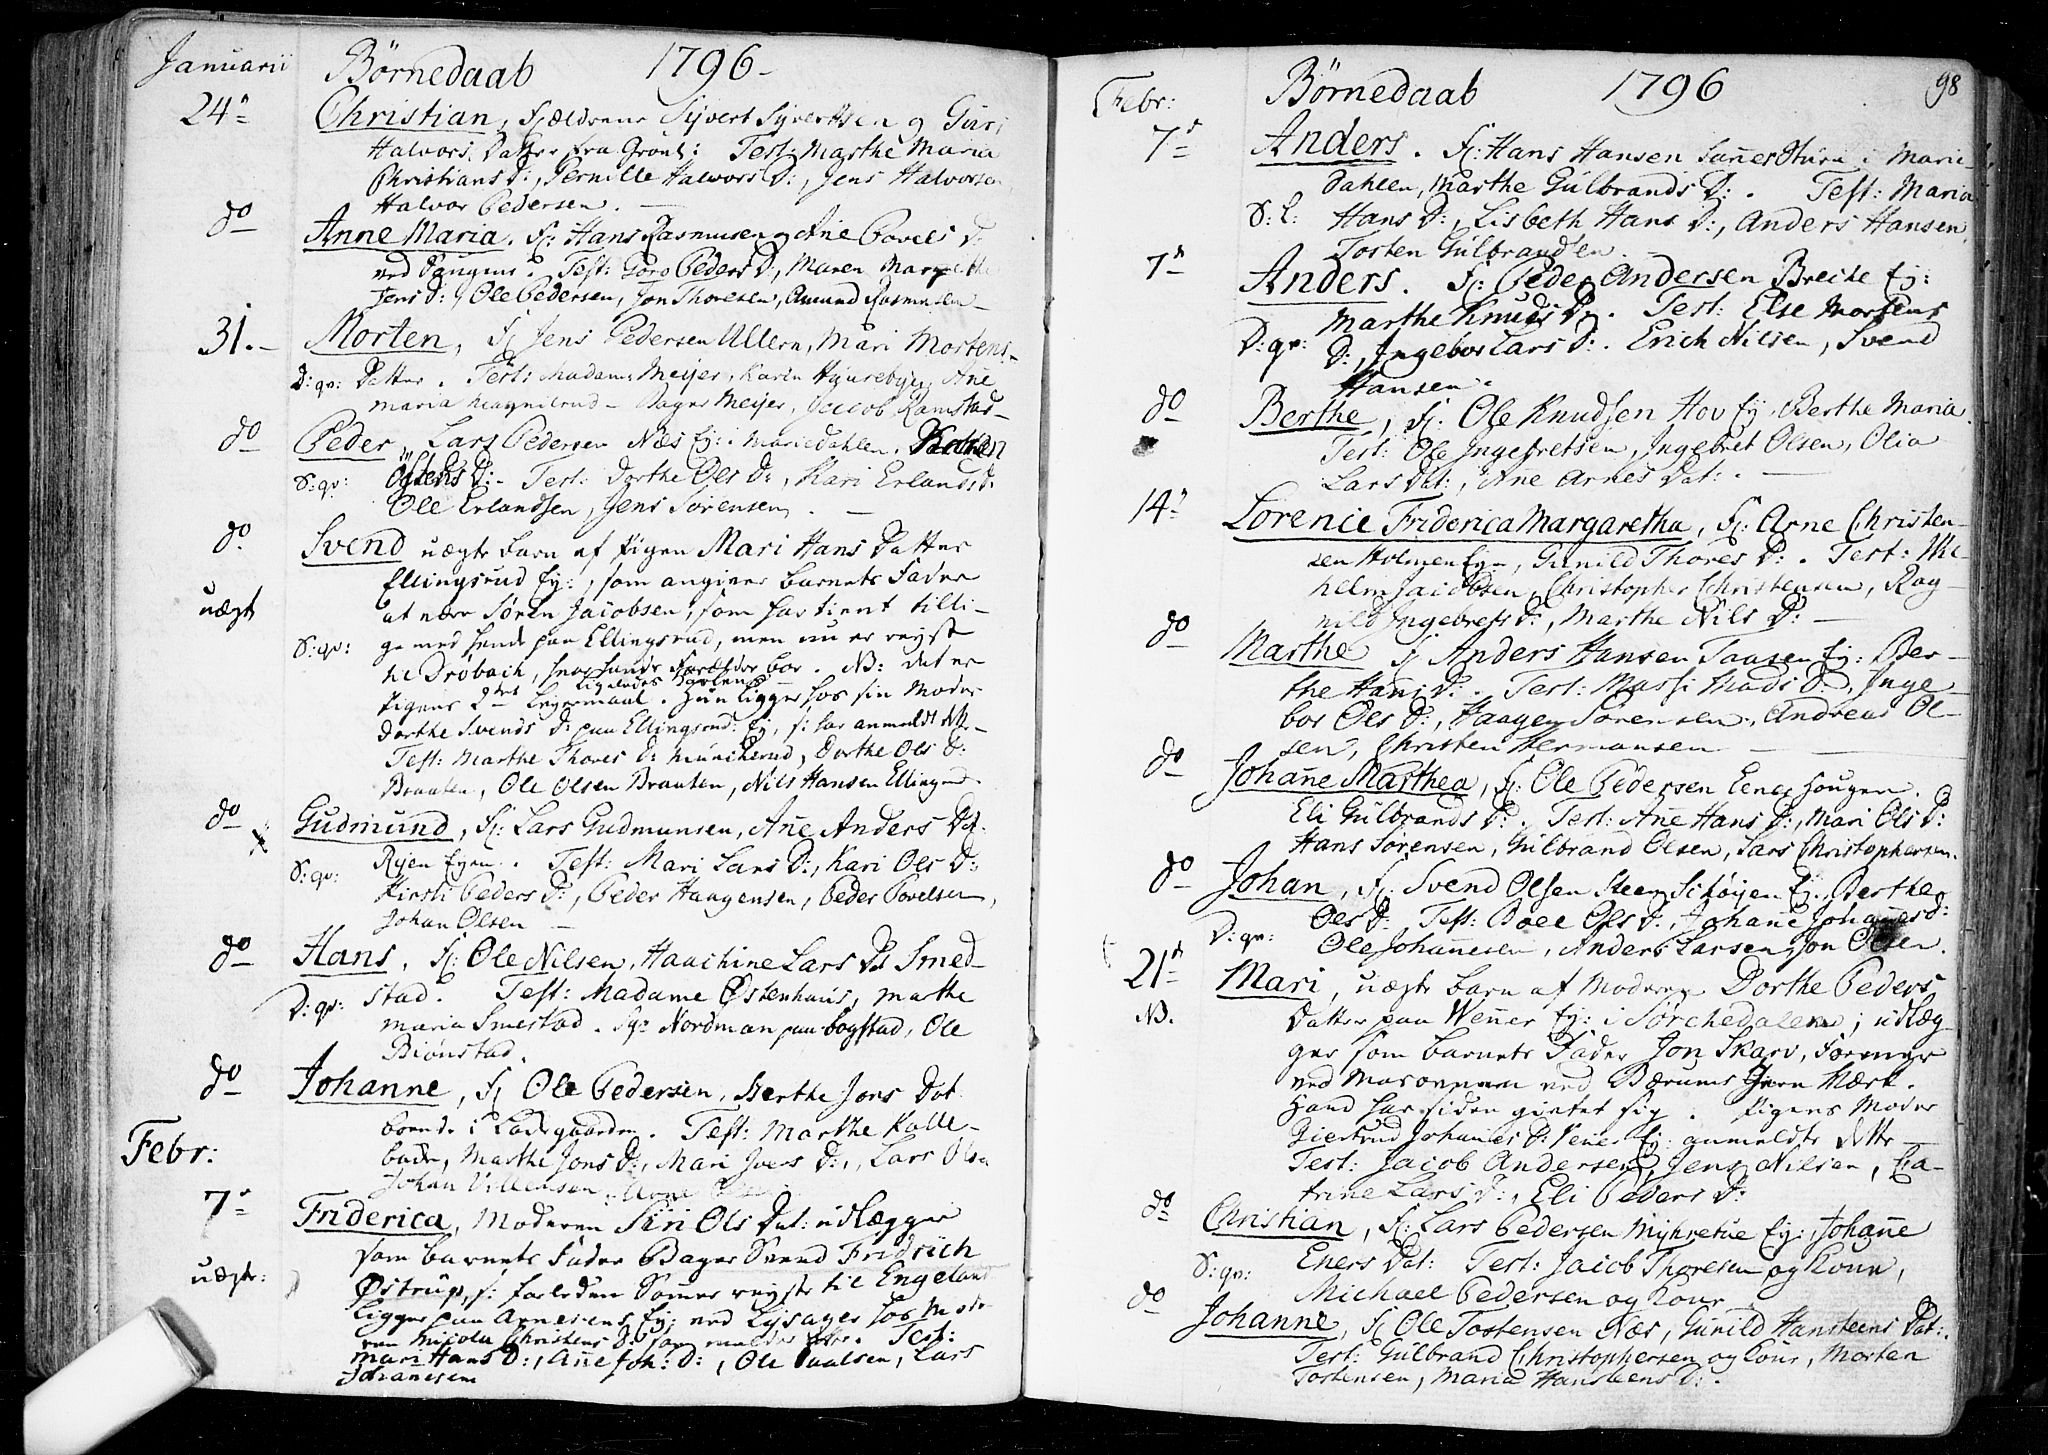 Januarii Börnedaab 1796
24de Christian, Forældrene Syvert Syvertsen og Guri
Halvors Datter fra Grönl: Test: Marthe Maria
Christians D:, Pernille Halvors D:, Jens Halvorsen,
Halvor Pedersen.
do Anne Maria. F: Hans Rasmusen og Ane Povels D:
ved Test: Goro Peders D:, Maren Margrethe
Jens D:, Ole Pedersen, Jon Thoresen, Amund Rasmusen
31. Morten, F: Jens Pedersen Ullern, Mari Mortens
D:qv: Datter. Test: Madame Meijer, Karen Huusebye, Ane
Maria Bager Meijer, Jacob Ramstad
do Peder, Lars Pedersen Næs Ej: i Mariedahlen,
S:qv: D: Test: Dorthe Ols D:, Kari Erlands D:
Ole Erlandsen, Jens Sörensen.
do. Svend uægte barn af Pigen Mari Hans Datter
Ellingsrud Ej:, som angiver barnets Fader
uægt at være Sören Jacobsen, som har tient tilli-
S:qv: ge med hende paa Ellingsrud, men nu er reyst
til Dröbach, hvor hands Forældre boe. NB: det er
Pigens 2det Leyermaal. ligeledes Karlens Hun ligger hos sin Moder
Dorthe Svends D: paa Ellingsrud: Ej, f: har anmeldt dette
Test: Marthe Thores D: Munkerud, Dorthe Ols D:
Braaten, Ole Olsen Braaten, Nils Hansen Ellingsrud.
do Gudmund, F: Lars Gudmunsen, Ane Anders Dat.
S:qv: Ryen Ejen. Test: Mari Lars D:, Kari Ols D:
Kirsti Peders D:, Peder Haagensen, Peder Povelsen,
Johan Olsen
do Hans, F: Ole Nilsen, Haachine Lars D: Smed-
D:qv: stad. Test: Madame Østenhaus, Marthe
Maria Smestad. Sr Nordman paa bogstad, Ole
Biönstad.
do Johanne, F: Ole Pedersen, Berthe Jons Dat
boende i Ladegaarden. Test: Marthe Kalle-
bache, Marthe Jons D:, Mari Ivers D:, Lars Olsen
Johan Villemsen, Arne
Febr:
7de Friderica, Moderen Siri Ols Dat: udlægger
som barnets Fader Bager Svend Fridrich
uægte: Østrup, f: forleden Sommer reyste til Engeland
ligger paa Arnesens Ej: ved Lysager hos Mode-
ren Nicola Christens D: som melder dette. Test:
Mari Hans D:, Ane Joh: D:, Ole Paalsen, Lars
Johanesen
Febr: Börnedaab 1796 98
7de Anders. F: Hans Hansen Sanes i Marie
Dahlen, Marthe Gulbrands D:. Test: Maria
S:l: Hans D:, Lisbeth Hans D:, Anders Hansen,
Torsten Gulbrandsen.
7de Anders. F: Peder Andersen Breche Ej:
Marthe Knuds D:. Test: Else Mortens
D:qv: D:, Ingebor Lars D:. Erich Nilsen, Svend
Hansen.
do Berthe, F: Ole Knudsen Hov Ej, Berthe Maria.
Test: Ole Ingebretsen, Ingebret Olsen, Olia
Lars Dat:, Ane Arnes Dat:.
14de Lorence Friderica Margaretha, F: Arne Christen-
sen Holmen Ejen, Gunild Thores D:. Test: Wil-
helm Jacobsen, Christopher Christensen, Rag-
nild Ingebrets D:, Marthe Nils D:
do Marthe F: Anders Hansen Taasen Ej: Ber-
the Hans D:. Test: Massi Mads D:, Inge-
bor Ols D:, Haagen Sörensen, Andreas Ol-
sen, Christen Hermansen
do Johane Marthea, F: Ole Pedersen Hougen.
Eli Gulbrands D:. Test: Ane Hans D:, Mari Ols D:
Hans Sörensen, Gulbrand Olsen, Lars Christophersen.
do Johan, F: Svend Olsen Steen Schöyen Ej: Berthe
D:qv: Ols D: Test: Boel Ols D:, Johane Johanes D:
Ole Johannesen, Anders Larsen, Jon Olsen.
21de Mari, uægte barn af Moderen Dorthe Peders
NB. Datter paa Wener Ej: i Sörchedalen; udlæg-
ger som barnets Fader Jon Skarv, Former
ved Masovnen ved Bærums Jern Værk.
Hand har siden giftet sig. Pigens Moder
Giertrud Johanes D: Vener Ej: anmeldte dette
Test: Jacob Andersen, Jens Nilsen, Ca-
trine Lars D:, Eli Peders D:
do Christian, F: Lars Pedersen Myhretue Ej:, Johane
S:qv: Eners Dat: Test: Jacob Thoresen og Kone,
Michael Pedersen og Kone
do Johanne, F: Ole Tostensen Næs, Gunild Hansteens Dat:.
Test: Gulbrand Christophersen og Kone, Morten
Tostensen, Maria Hansteens D:.